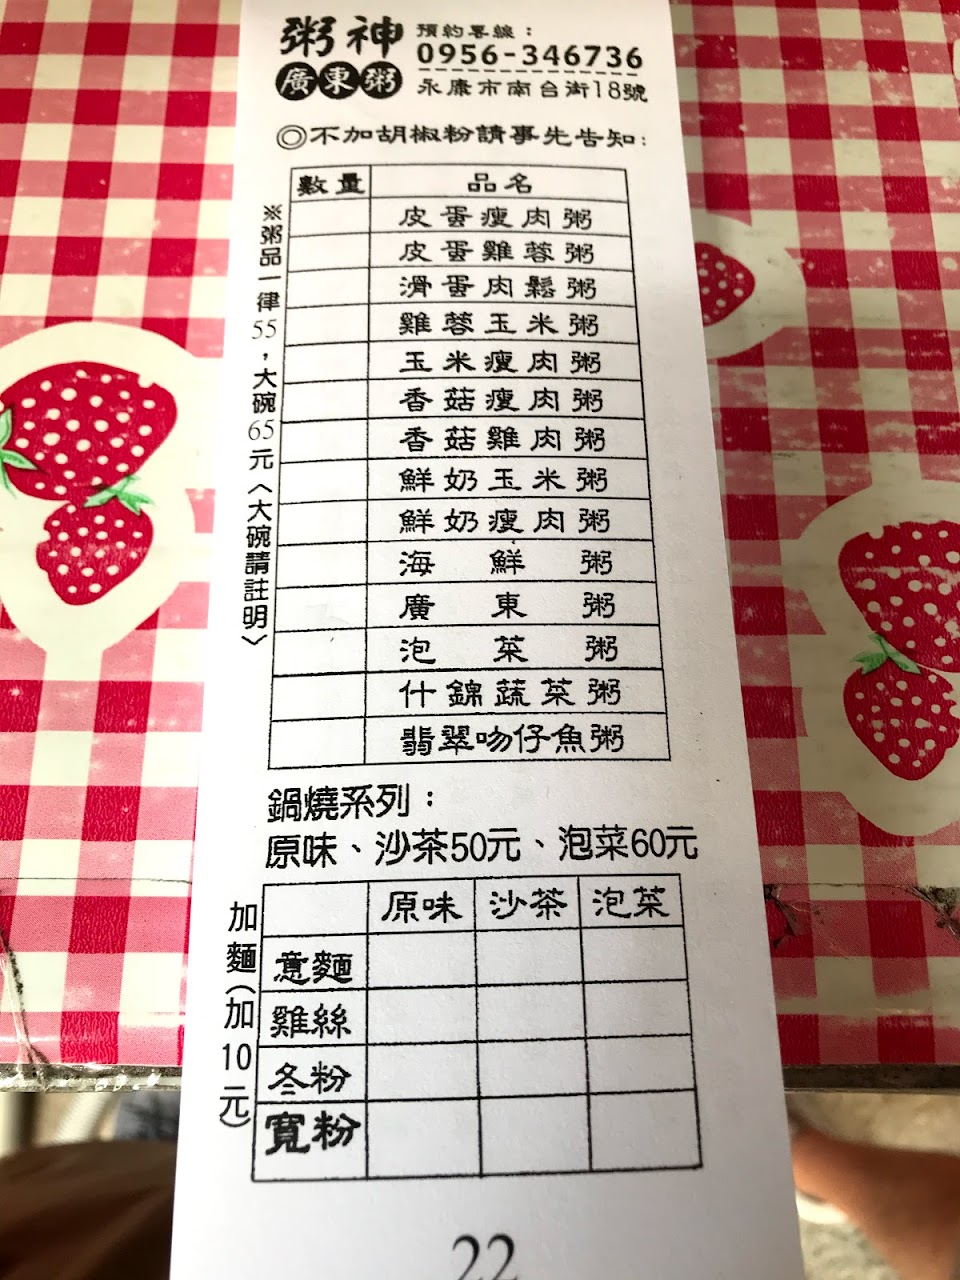 粥神
廣東粥
預約專線：
0956-346736
永康市南台街18號
◎不加胡椒粉請事先告知：
數量 品名
皮蛋瘦肉粥
皮蛋雞蓉粥
滑蛋肉鬆粥
雞蓉玉米粥
玉米瘦肉粥
香菇瘦肉粥
香菇雞肉粥
鮮奶玉米粥
鮮奶瘦肉粥
海鮮粥
廣東粥
泡菜粥
什錦蔬菜粥
翡翠吻仔魚粥
※粥品一律55，大碗65元〈大碗請註明〉
鍋燒系列：
原味、沙茶50元、泡菜60元
原味 沙茶 泡菜
意麵
雞絲
冬粉
寬粉
加麵(加10元)
22